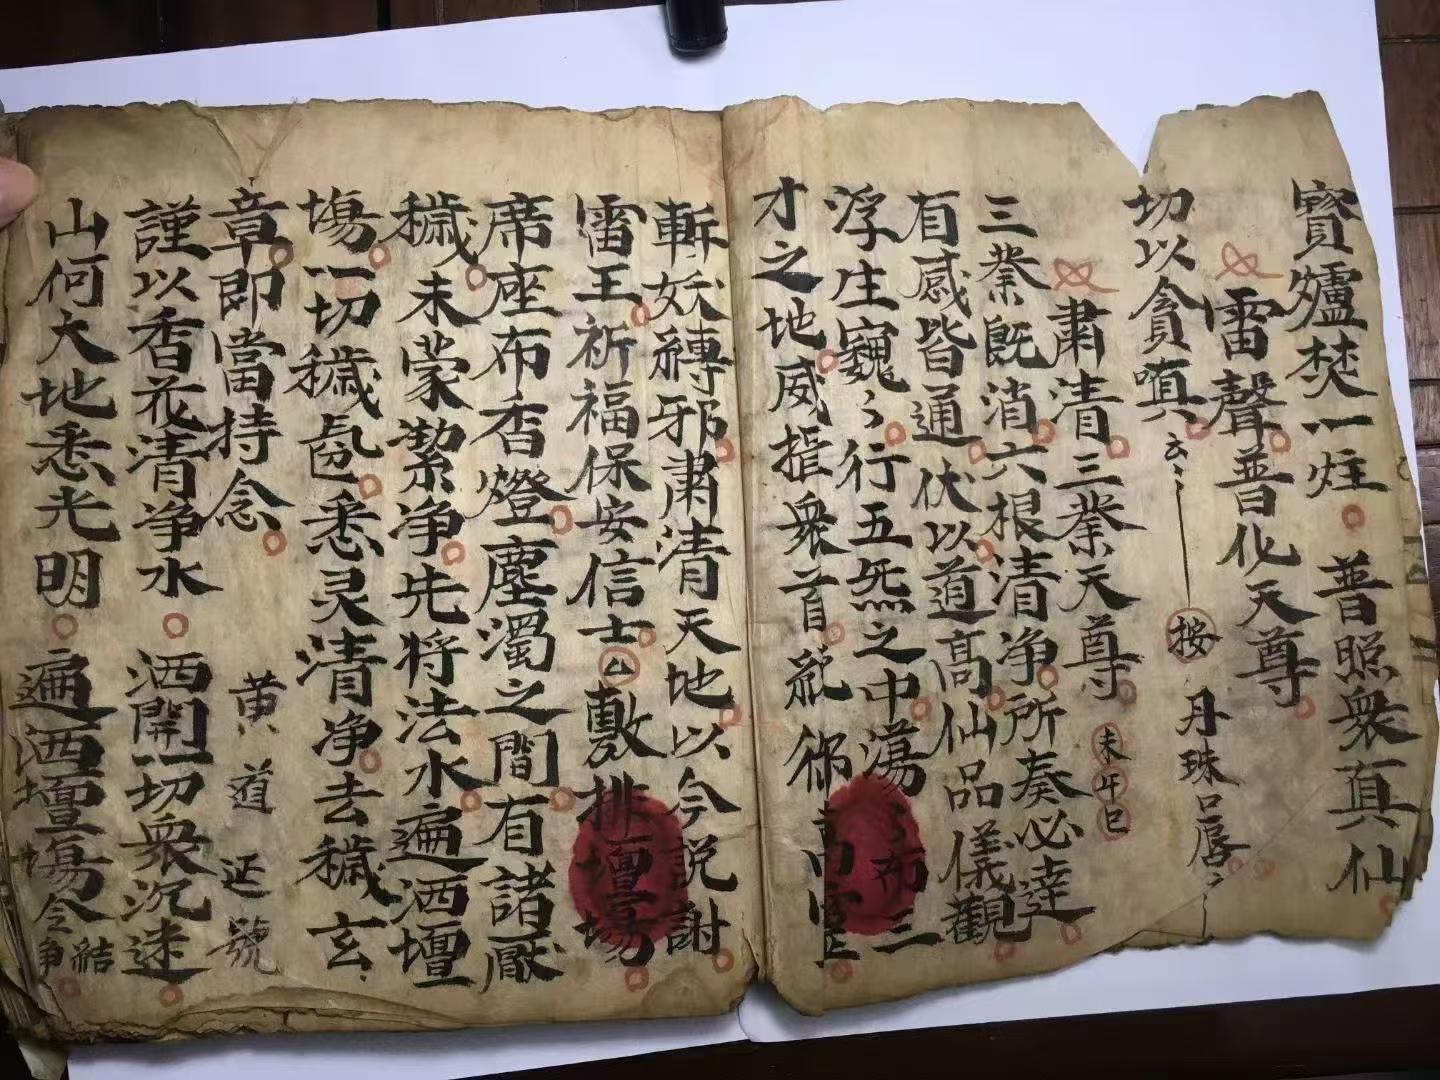 寳爐焚一炷普照衆真仙
雷聲普化天尊
切以貪嗔云々按丹珠口唇々
肅清三業天尊未午巳
三業既消六根清净所奏必達
有感皆通伏以道高仙品儀觀
浮生巍々行五炁之中蕩々布三
才之地威摧衆首
斬妖縛邪肅清天地以今説謝
雷王祈福保安信士厶敷排壇場
席座布香燈塵濁之間有諸厭
穢未蒙潔净先将法水遍洒壇
塲一切穢氣悉灵清净去穢玄
章即當持念黄道延號
謹以香花清净水洒開一切衆沉迷
山何大地悉光明遍洒壇塲令結净